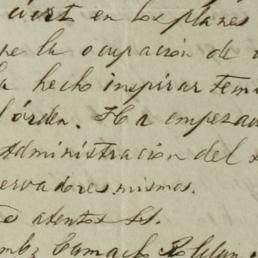 en los planes
la ocupación de
hecho inspirar tem
órden. Ha empezad
Administración del
ervadores mismos.
atentos SS.
Camacho Roldan